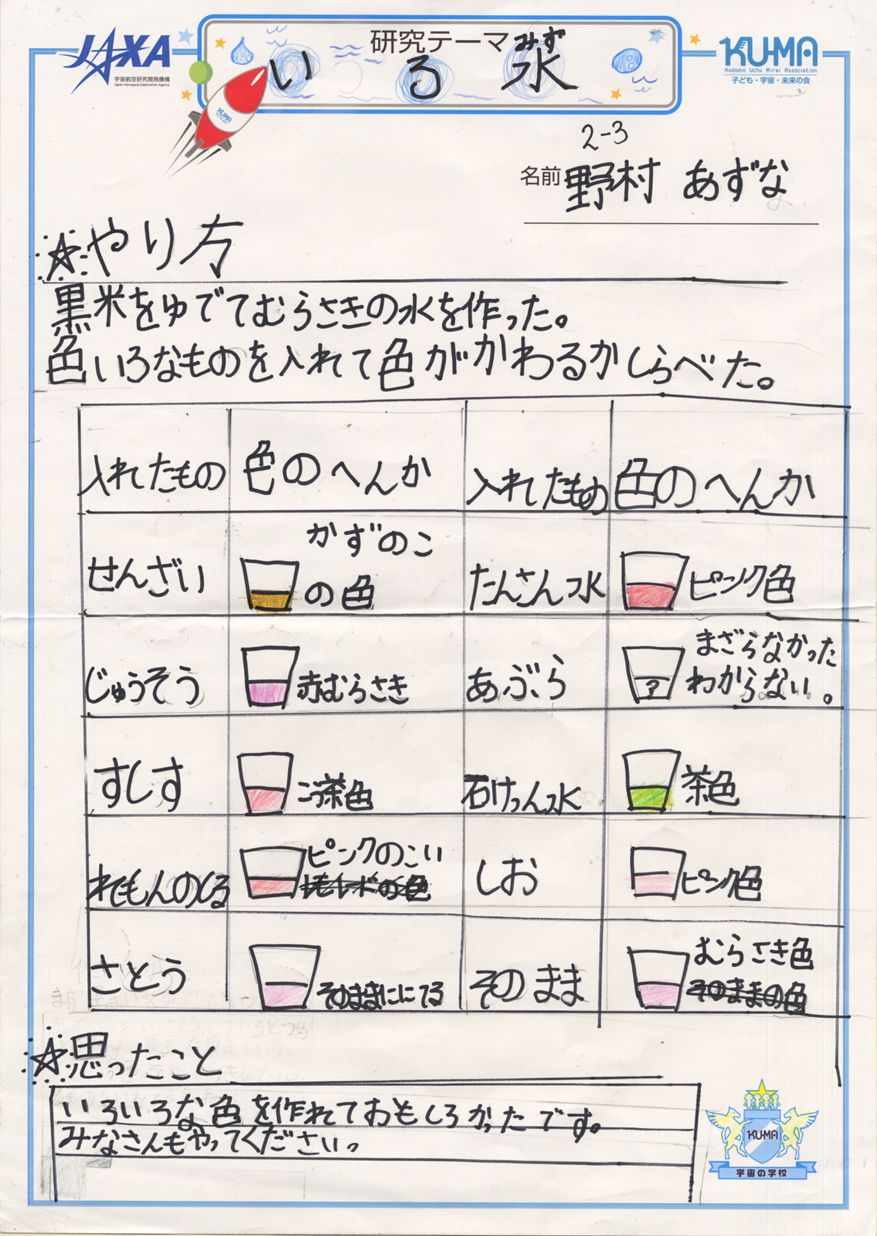 JAXA
宇宙航空研究開発機構
Japan Aerospace Exploration Agency
研究テーマ
みず
いろ水
KUMA
Kodomo Uchu Mirai Association
子ども・宇宙・未来の会
KUMA
2-3
名前 野村 あずな
☆やり方
黒米をゆでてむらさきの水を作った。
色いろなものを入れて色がかわるかしらべた。
入れたもの 色のへんか 入れたもの 色のへんか
せんざい かずのこの色 たんさん水 ピンク色
じゅうそう 赤むらさき あぶら ? まざらなかったわからない。
すしす 茶色 石けん水 茶色
れもんのしる ピンクのこい しお ピンク色
さとう そのままににてる そのまま むらさき色
そのままの色
☆思ったこと
いろいろな色を作れておもしろかったです。
みなさんもやってください。
KUMA
宇宙の学校